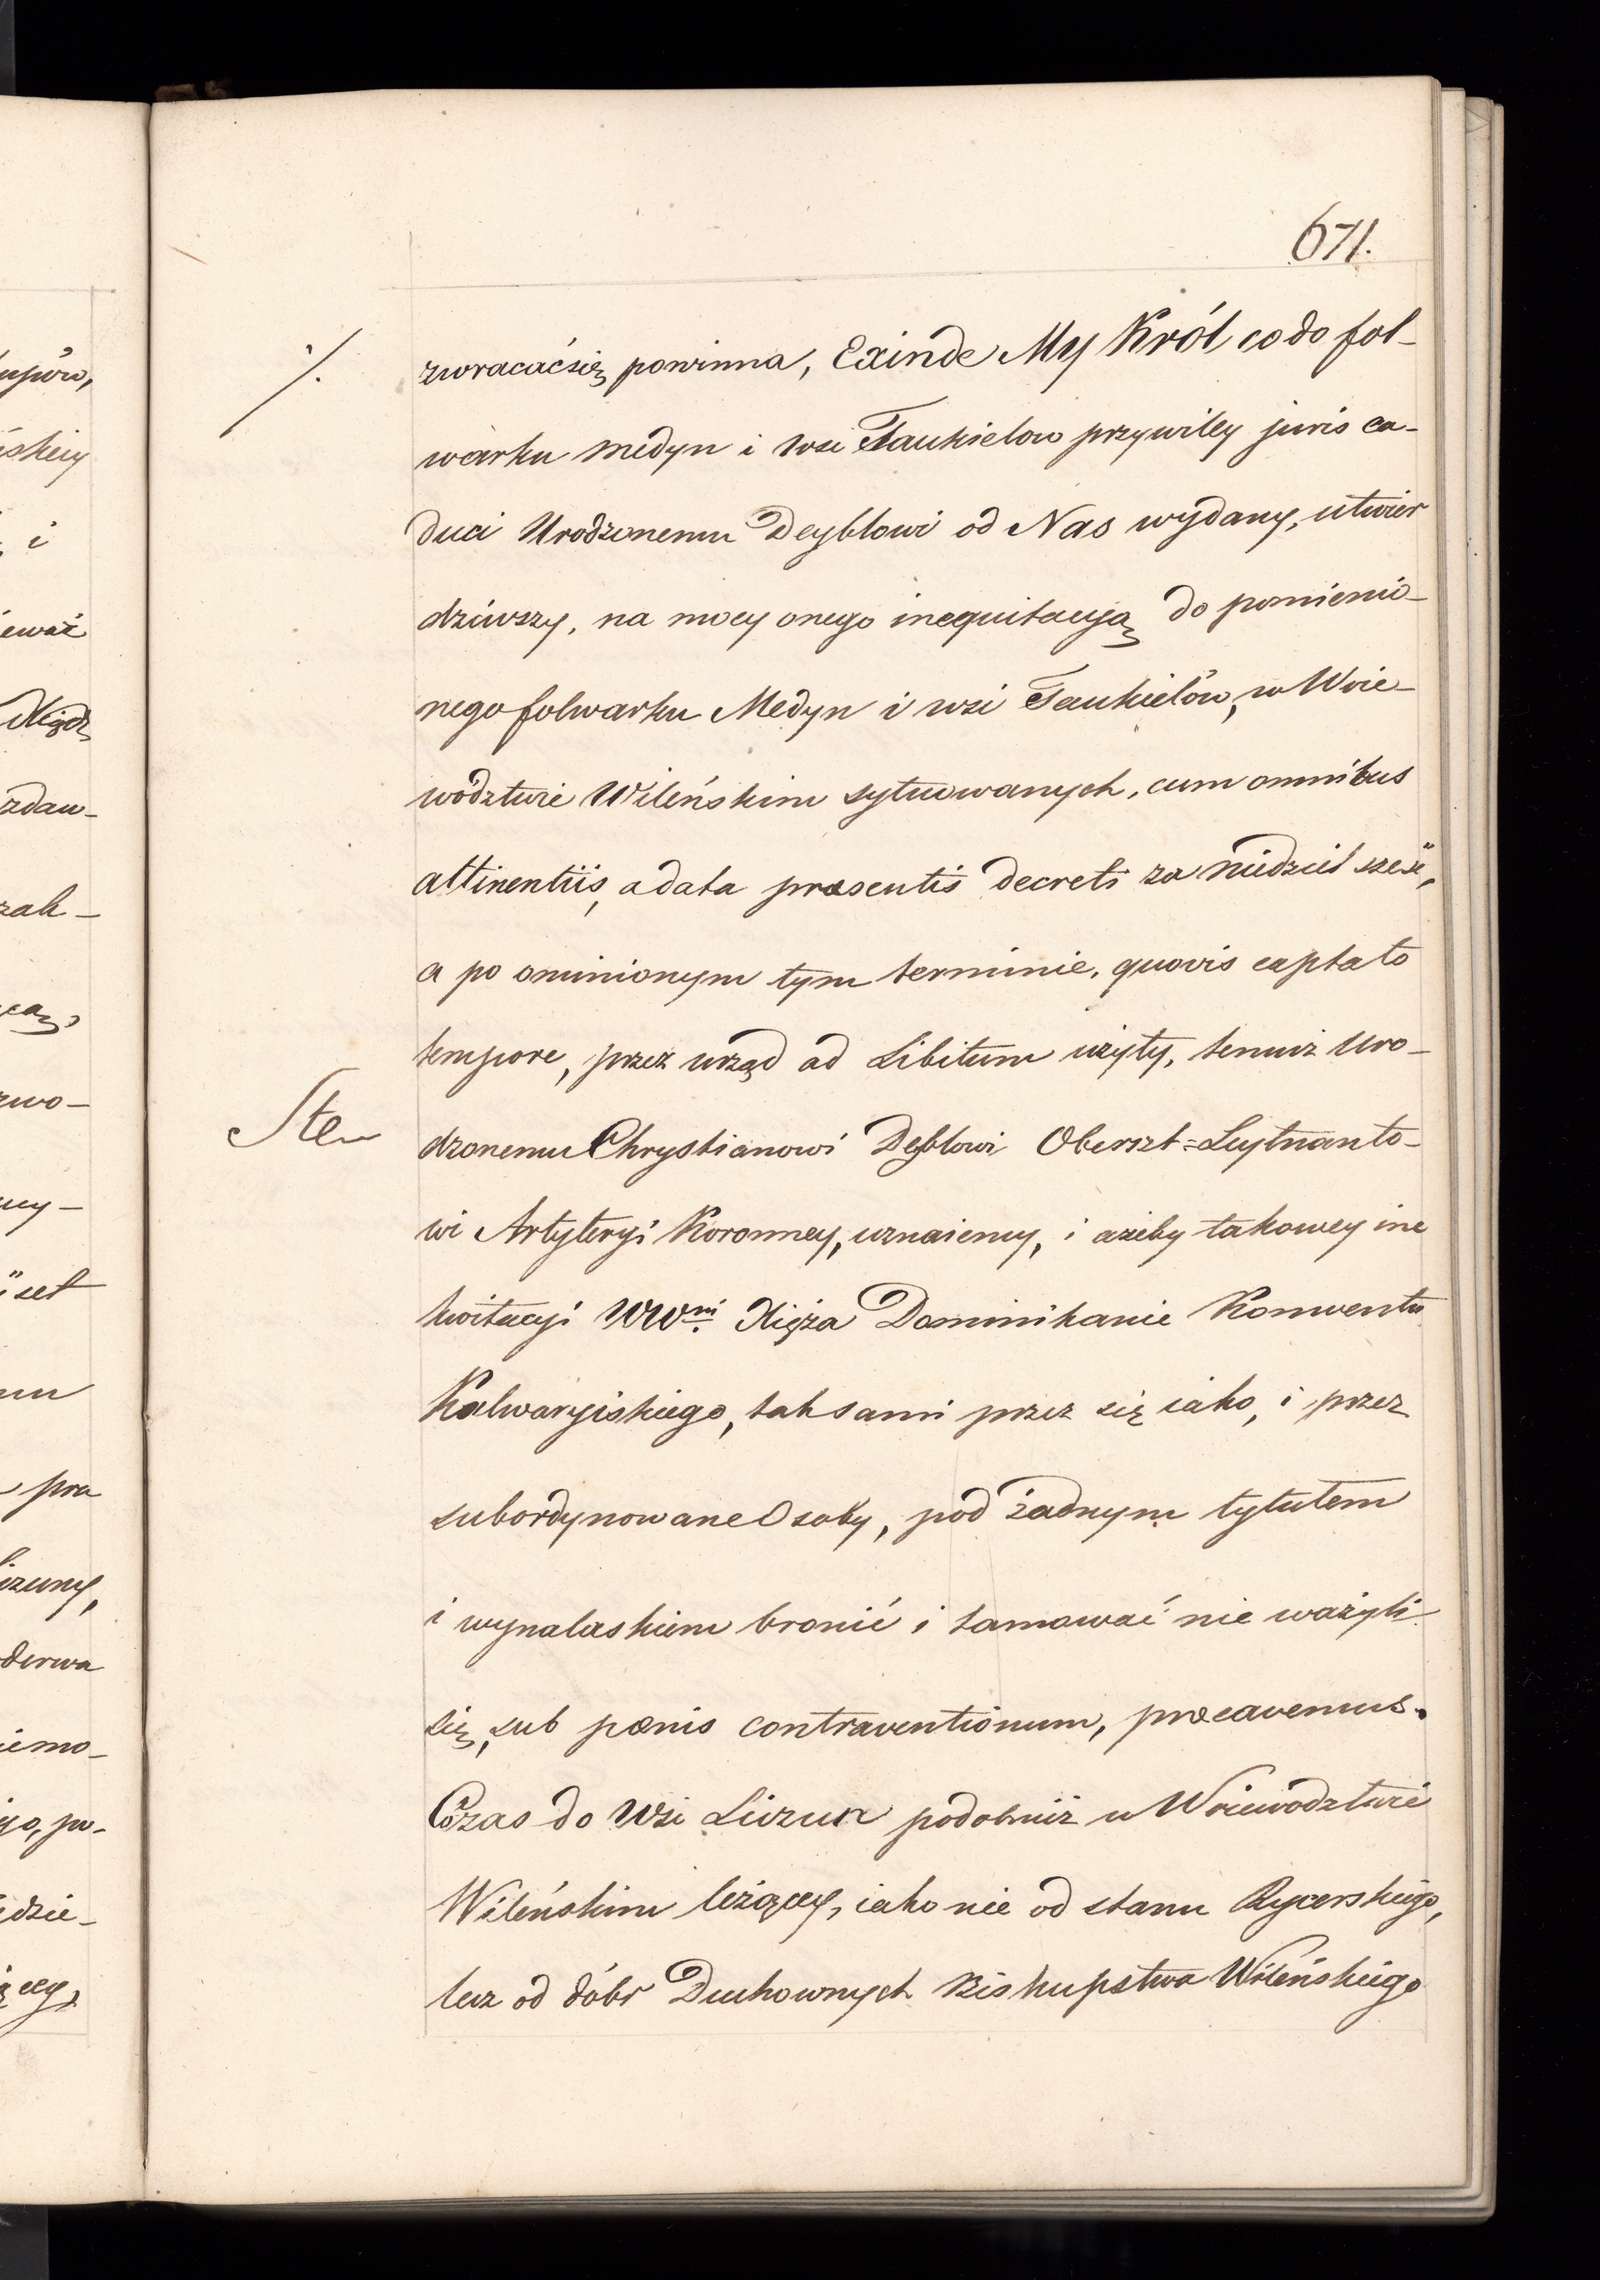 671.
zwracać się powinna, Exinde My Król co do fol-
warku Medyn i wsi Taukielow przywiley juris ca-
duci Urodzonemu Deyblowi od Nas wydany, utwier
dziwszy, na mocy onego inequitacyą do pomienio-
nego folwarku Medyn i wsi Taukielów, w Woie-
wództwie Wileńskim sytuowanych, cum omnibus
attinentiis, a data præsentis decreti za niedziel sześć,
a po ominionym tym terminie, quovis captato
tempore, przez urząd ad Libitum użyty, temuż Uro-
dzonemu Chrystianowi Deyblowi Oberszt=Leytnanto-
wi Artyleryi Koronney, uznaiemy, i ażeby takowey ine
kwitacyi WWni Xięża Dominikanie Konwentu
Kalwaryiskiego, tak sami przez się iako, i przez
subordynowane Osoby, pod żadnym tytułem
i wynalaskiem bronić i tamować nie ważyli
się, sub pœnis contraventionum, præcavemus.
Czas do Wsi Lizun podobnież w Woiewodztwie
Wileńskim leżącey, iako nie od stanu Rycerskiego,
lecz od dóbr Duchownych Biskupstwa Wileńskiego